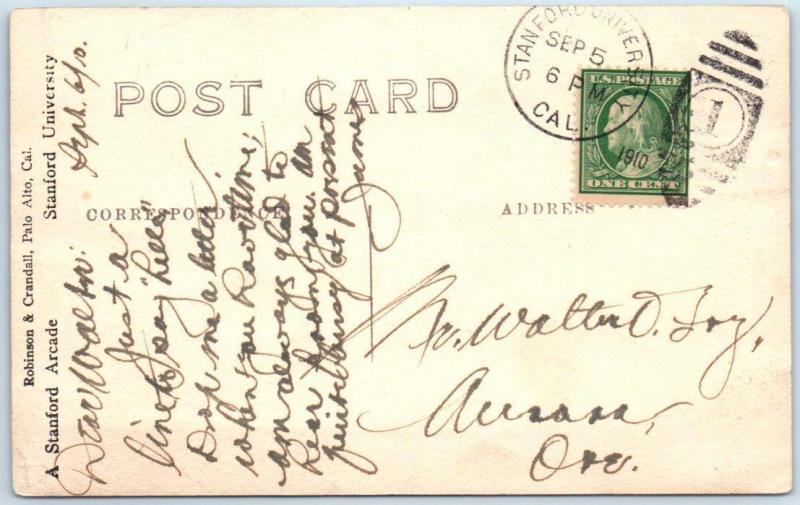 POST CARD
CORRESPONDENCE
ADDRESS
STANFORD UNIVERSITY
SEP 5
6 PM
CAL.
1910
1
U.S. POSTAGE
ONE CENT
Robinson & Crandall, Palo Alto, Cal.
A Stanford Arcade Stanford University
Sept. 6/10.
Dear Walter:
Just a
line to say "hello"
Drop me a letter
when you have time;
am always glad to
hear from you. Am
quite busy at present
James
Mr. Walter D. Fry,
Aurora,
Ore.